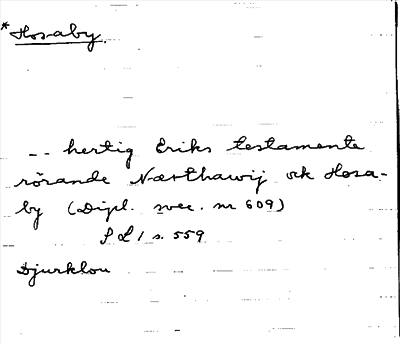 *Hosaby.
-- hertig Eriks testamente
rörande Næsthawij ok Hosa-
by (Dipl. svec. nr 609)
S L 1 s. 559
Djurklou